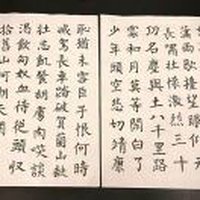 瀟雨歇擡望眼仰天
長嘯壯懷激烈三十
功名塵與土八千里路
雲和月莫等閒白了
少年頭空悲切靖康
恥猶未雪臣子恨何時
滅駕長車踏破賀蘭山缺
壯志飢餐胡虜肉笑談
渴飲匈奴血待從頭收
拾舊山河朝天闕